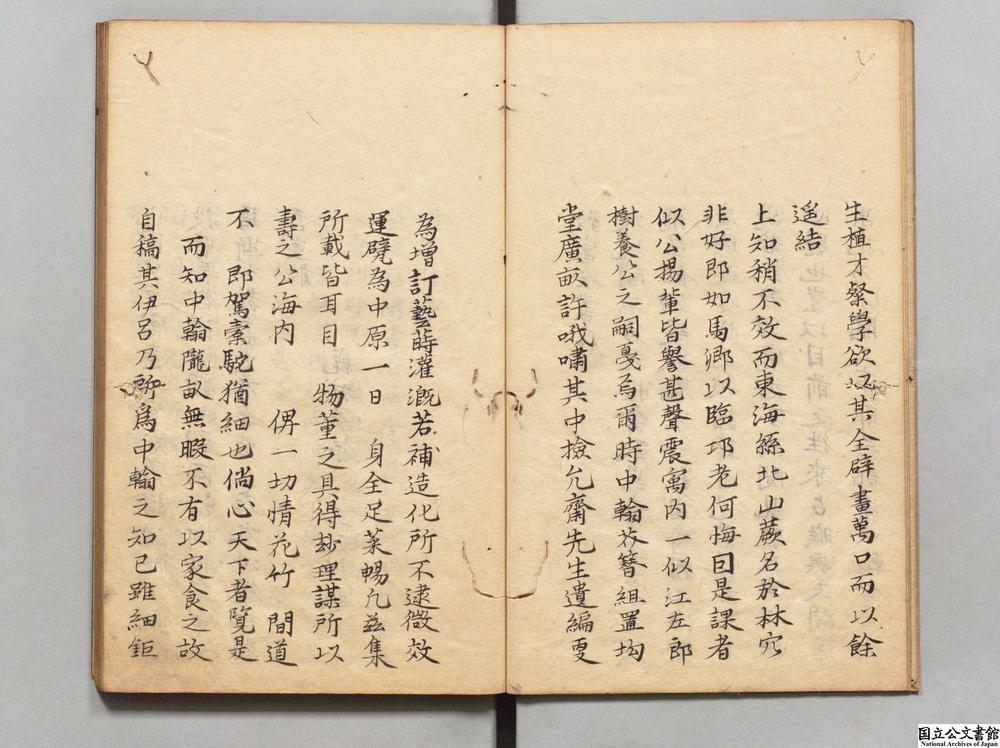 生植才粲學欲以其全辟畫萬口而以餘
遥結
上知稍不效而東海絲北山蕨名於林穴
非好即如馬卿以臨邛老何悔曰是課者
似公揚輩皆譽甚聲震寓内一似江左郎
樹養公之嗣戞爲爾時中翰衣簪組置均
堂廣畝許哦嘯其中撿允齋先生遺編更
為增訂藝蒔灌漑若補造化所不逮微效
運甓為中原一日 身全足葉暢凢茲集
所載皆耳目 物董之具得妙理謀所以
壽之公海内 俾一切情花竹 間道
不 即駕橐駝猶細也倘心天下者覽是
而知中翰隴畝無暇不有以家食之故
自稿其伊呂乃所爲中翰之知己雖細鉅
国立公文書館
National Archives of Japan